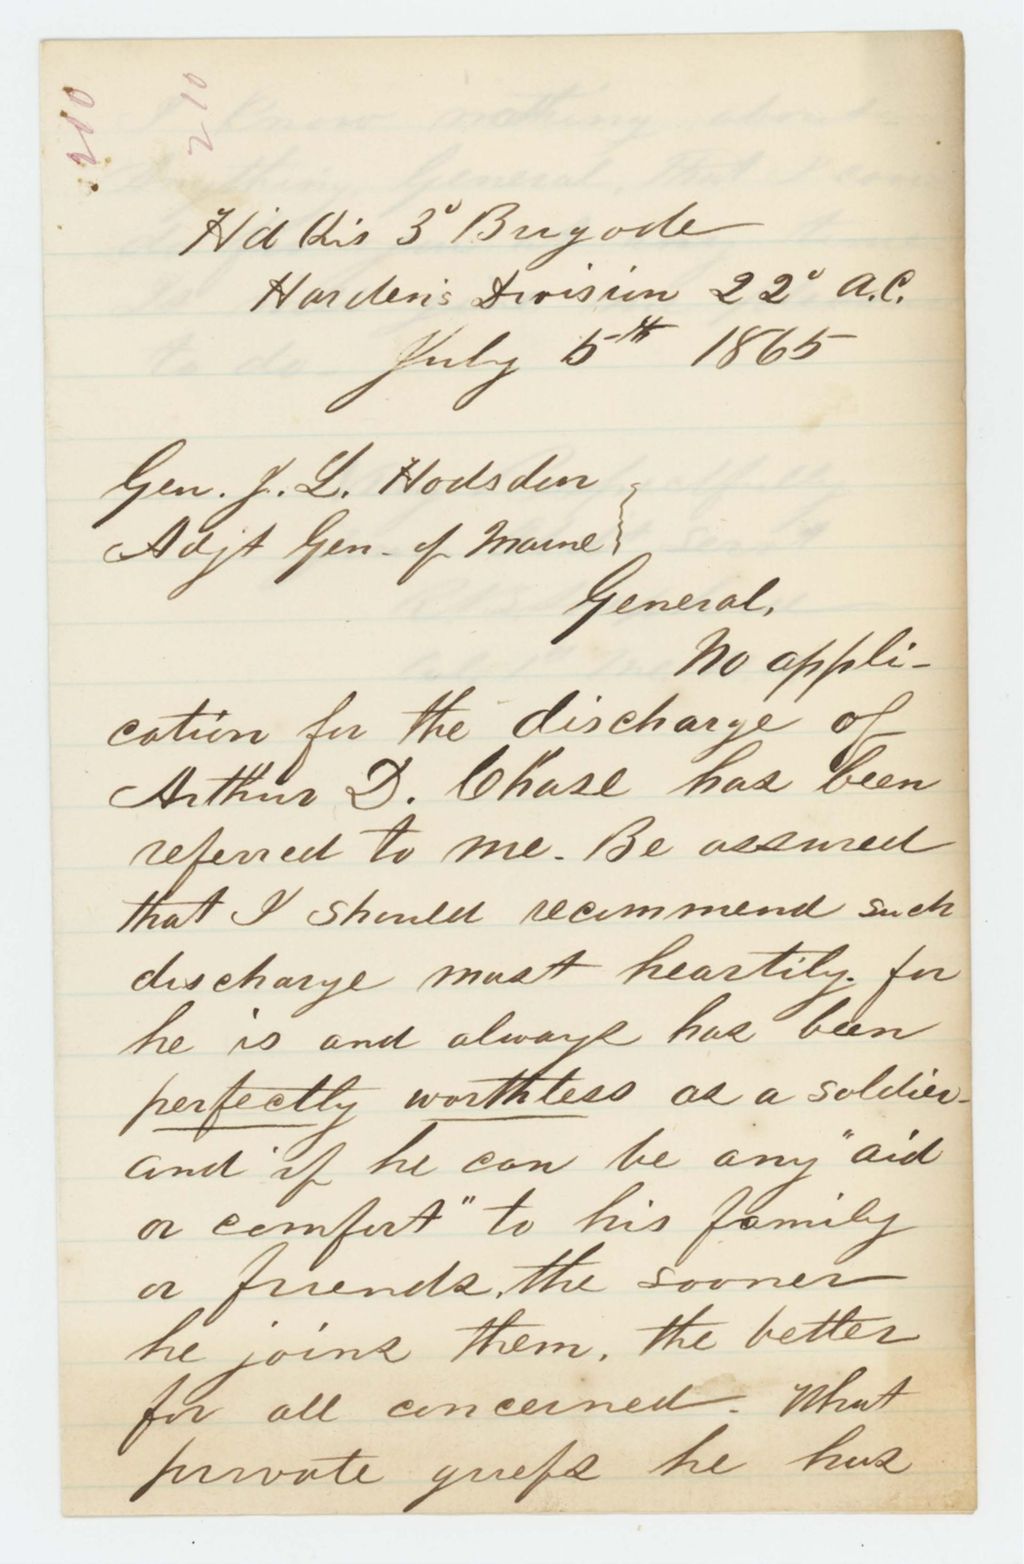 210
210
Hd Qrs 3d Brigade
Hardin's Division 22d A.C.
July 5th 1865
Gen. J. L. Hodsdon
Adjt Gen. of Maine
General,
No appli-
cation for the discharge of
Arthur D. Chase has been
referred to me. Be assured
that I should recommend such
discharge most heartily. for
he is and always has been
perfectly worthless as a soldier-
and if he can be any "aid
or comfort" to his family
or friends, the sooner
he joins them, the better
for all concerned. What
private griefs he has